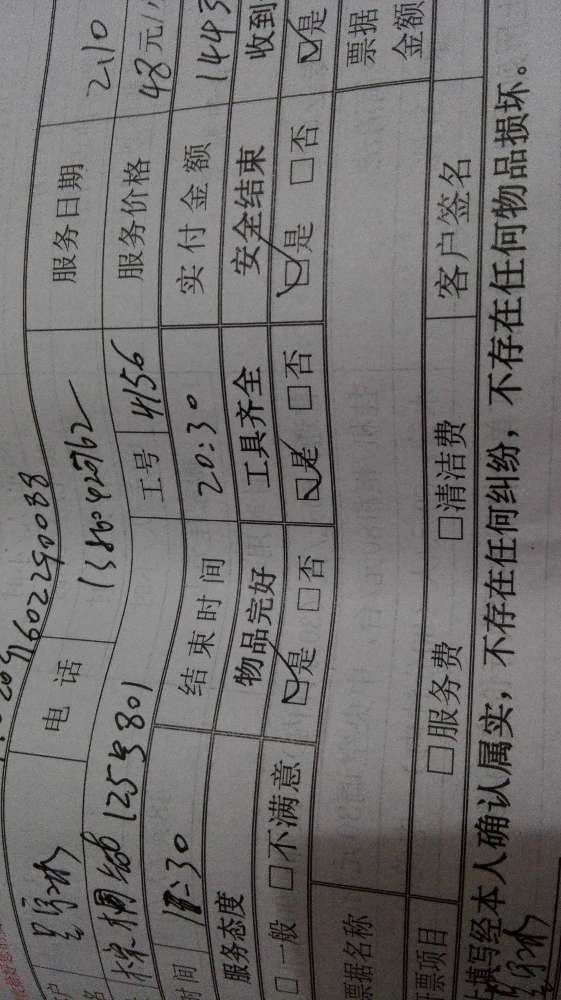 091602290038
电话 13860420762 服务日期 2.10
1253801 工号 4156 服务价格 48元/
时间 :30 结束时间 20:30 实付金额 1443
服务态度 物品完好 工具齐全 安全结束 收到
□一般 □不满意 ☑是 □否 ☑是 □否 ☑是 □否 ☑是
票据名称 票据金额
票项目 □服务费 □清洁费 客户签名
填写经本人确认属实，不存在任何纠纷，不存在任何物品损坏。